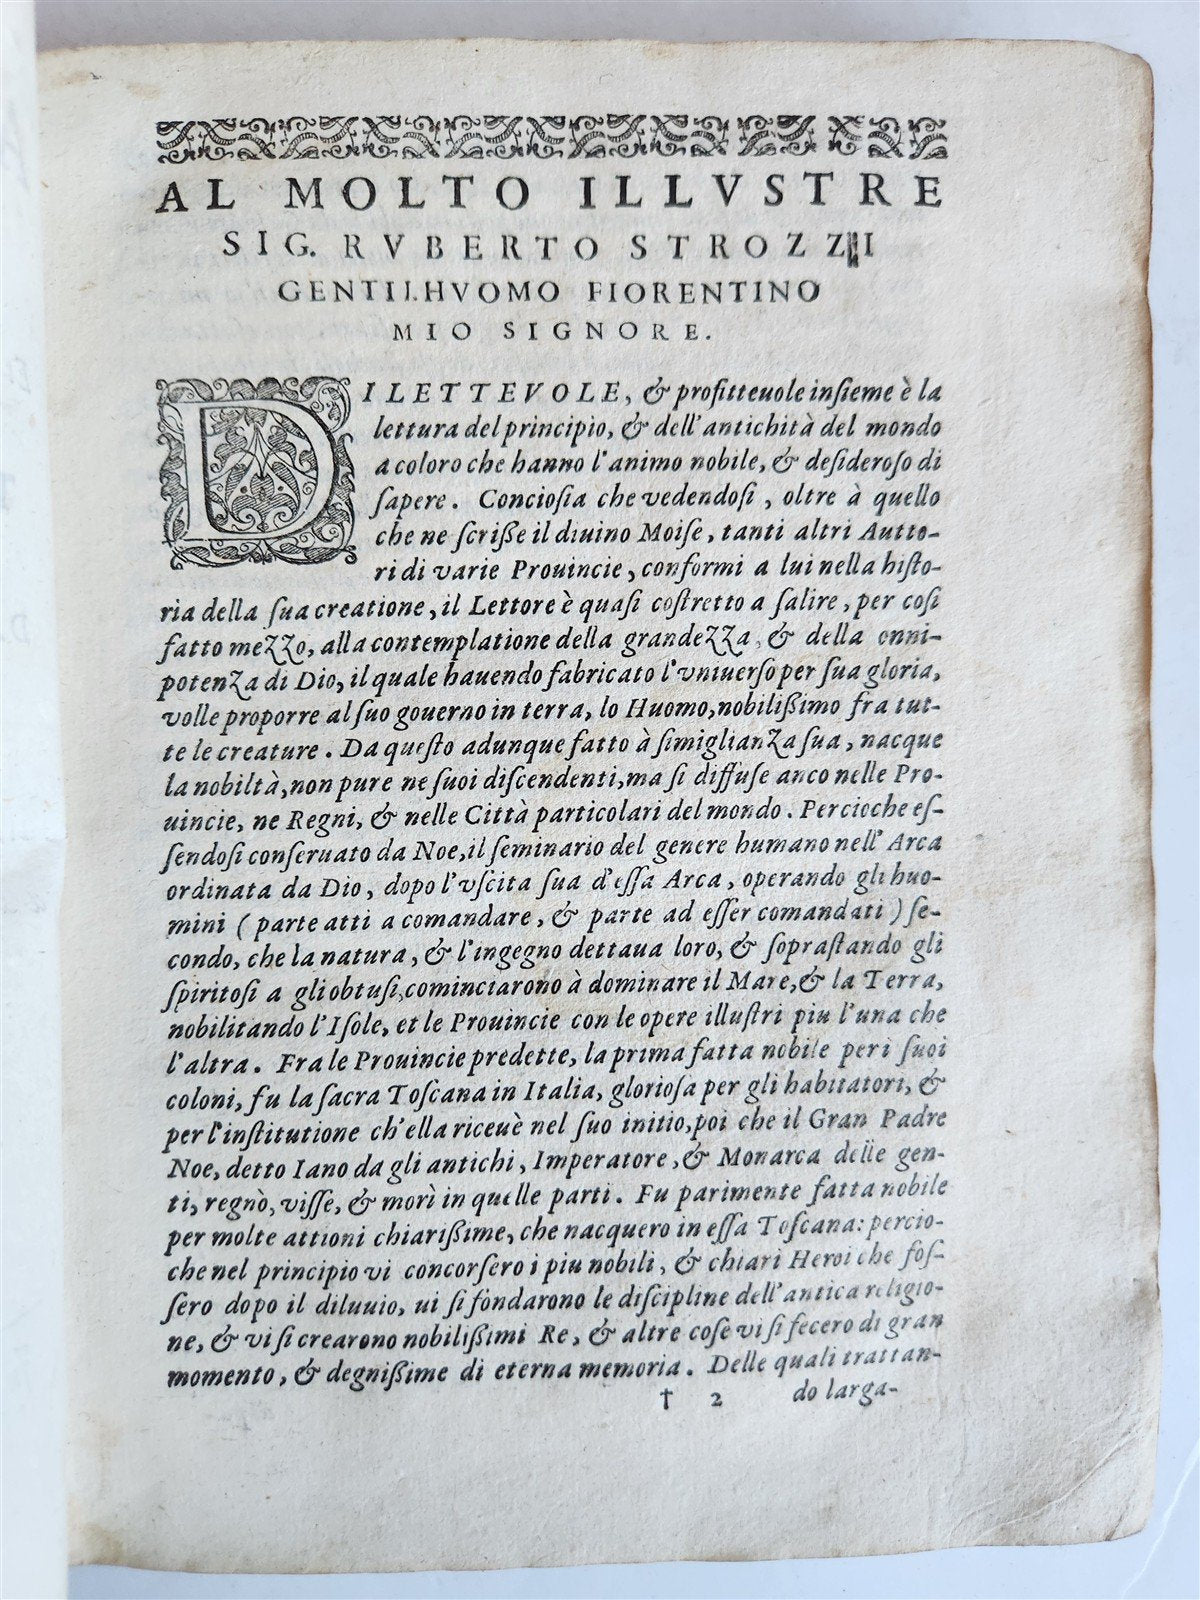 AL MOLTO ILLVSTRE
SIG. RVBERTO STROZZI
GENTILHVOMO FIORENTINO
MIO SIGNORE.
DILETTEVOLE, & profitteuole insieme è la
lettura del principio, & dell'antichità del mondo
a coloro che hanno l'animo nobile, & desideroso di
sapere. Conciosia che vedendosi, oltre à quello
che ne scriße il diuino Moise, tanti altri Autto-
ri di varie Prouincie, conformi a lui nella histo-
ria della sua creatione, il Lettore è quasi costretto a salire, per cosi
fatto mezzo, alla contemplatione della grandezza, & della onni-
potenza di Dio, il quale hauendo fabricato l'vniuerso per sua gloria,
volle proporre al suo gouerno in terra, lo Huomo, nobilißimo fra tut-
te le creature. Da questo adunque fatto à simiglianza sua, nacque
la nobiltà, non pure ne suoi discendenti, ma si diffuse anco nelle Pro-
uincie, ne Regni, & nelle Città particolari del mondo. Percioche es-
sendosi conseruato da Noe, il seminario del genere humano nell'Arca
ordinata da Dio, dopo l'vscita sua d'essa Arca, operando gli huo-
mini (parte atti a comandare, & parte ad esser comandati) se-
condo, che la natura, & l'ingegno dettaua loro, & soprastando gli
spiritosi a gli obtusi, cominciarono à dominare il Mare, & la Terra,
nobilitando l'Isole, et le Prouincie con le opere illustri piu l'una che
l'altra. Fra le Prouincie predette, la prima fatta nobile per i suoi
coloni, fu la sacra Toscana in Italia, gloriosa per gli habitatori, &
per l'institutione ch'ella riceuè nel suo initio, poi che il Gran Padre
Noe, detto Iano da gli antichi, Imperatore, & Monarca delle gen-
ti, regnò, visse, & morì in quelle parti. Fu parimente fatta nobile
per molte attioni chiarißime, che nacquero in essa Toscana: percio-
che nel principio vi concorsero i piu nobili, & chiari Heroi che fos-
sero dopo il diluuio, ui si fondarono le discipline dell'antica religio-
ne, & vi si crearono nobilißimi Re, & altre cose vi si fecero di gran
momento, & degnißime di eterna memoria. Delle quali trattan-
† 2 do larga-